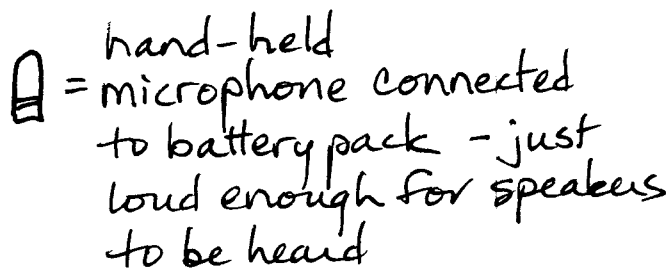 hand-held
= microphone connected
to battery pack - just
loud enough for speakers
to be heard